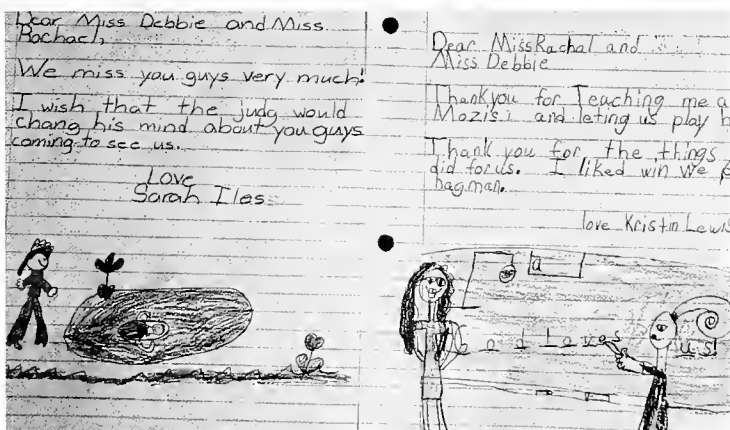 Dear Miss Debbie and Miss
Rachach,
We miss you guys very much!
I wish that the judg would
chang his mind about you guys
coming to see us.
Love
Sarah Iles
Dear Miss Rachal and
Miss Debbie
Thank you for Teaching me a
and leting us play h
Thank you for the things
did for us. I liked win we p
hagman.
love Kristin Lewis
a
God Loves us!